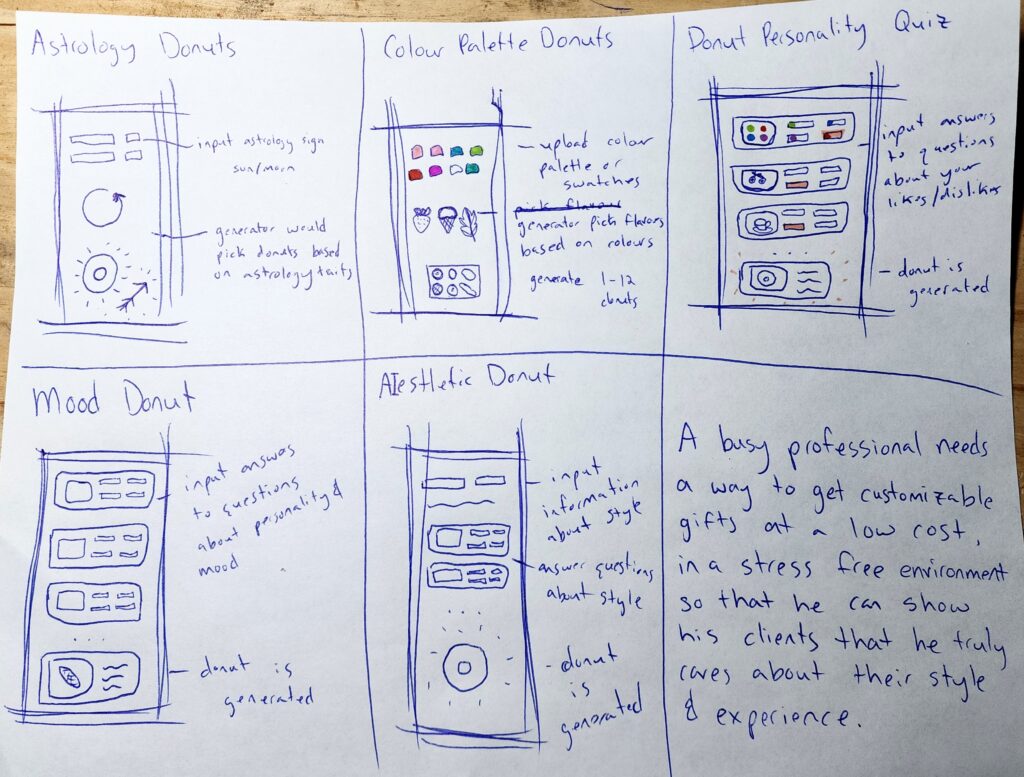 Astrology Donuts
input astrology sign
sun/moon
generator would
pick donuts based
on astrology taits
Colour Palette Donuts
upload colour
palette or
swatches
pick flavour
generator pick flavors
based on colours
generate 1-12
donuts
Donut Personality Quiz
input answers
to questions
about your
likes/dislikes
donut is
generated
Mood Donut
input answes
to questions
about personality &
mood
donut is
generated
AIestletic Donut
input
information
about style
answer questions
about style
donut
is
generated
A busy professional needs
a way to get customizable
gifts at a low cost,
in a stress free environment
so that he can show
his clients that he truly
cares about their style
& experience.